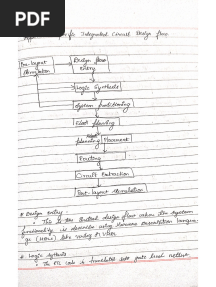 PDF
Integrated Circuit Design flow
Pre-layout
Simulation
Design flow
Entry
Logic Synthesis
System partitioning
Floor planning
Placement
Routing
Circuit Extraction
Post-layout simulation
* Design Entry :
* This is the design flow where the system
functionality is described using Hardware description langua-
ge (HDL) like verilog or VHDL
* Logic Synthesis
* The RTL code is translated into gate level netlist